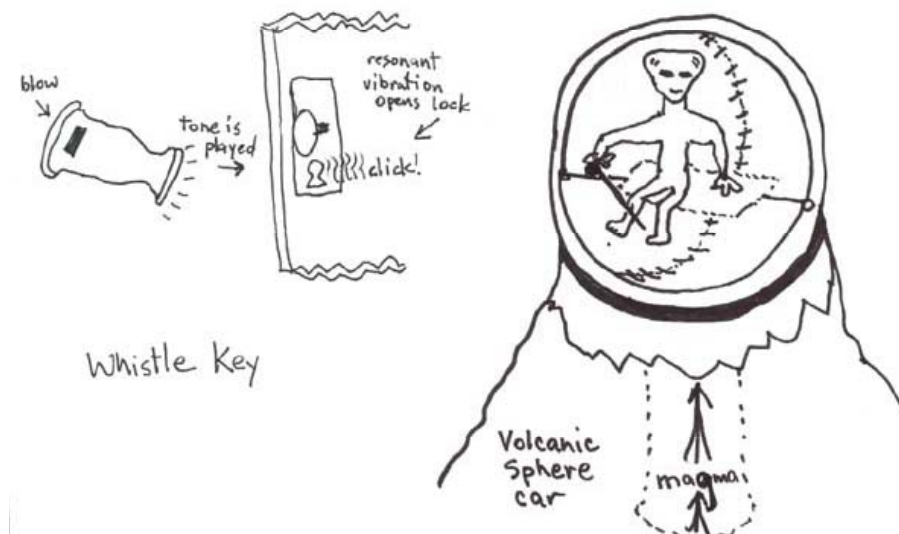 blow
tone is
played
resonant
vibration
opens lock
click!
Whistle Key
Volcanic
Sphere
car
magma